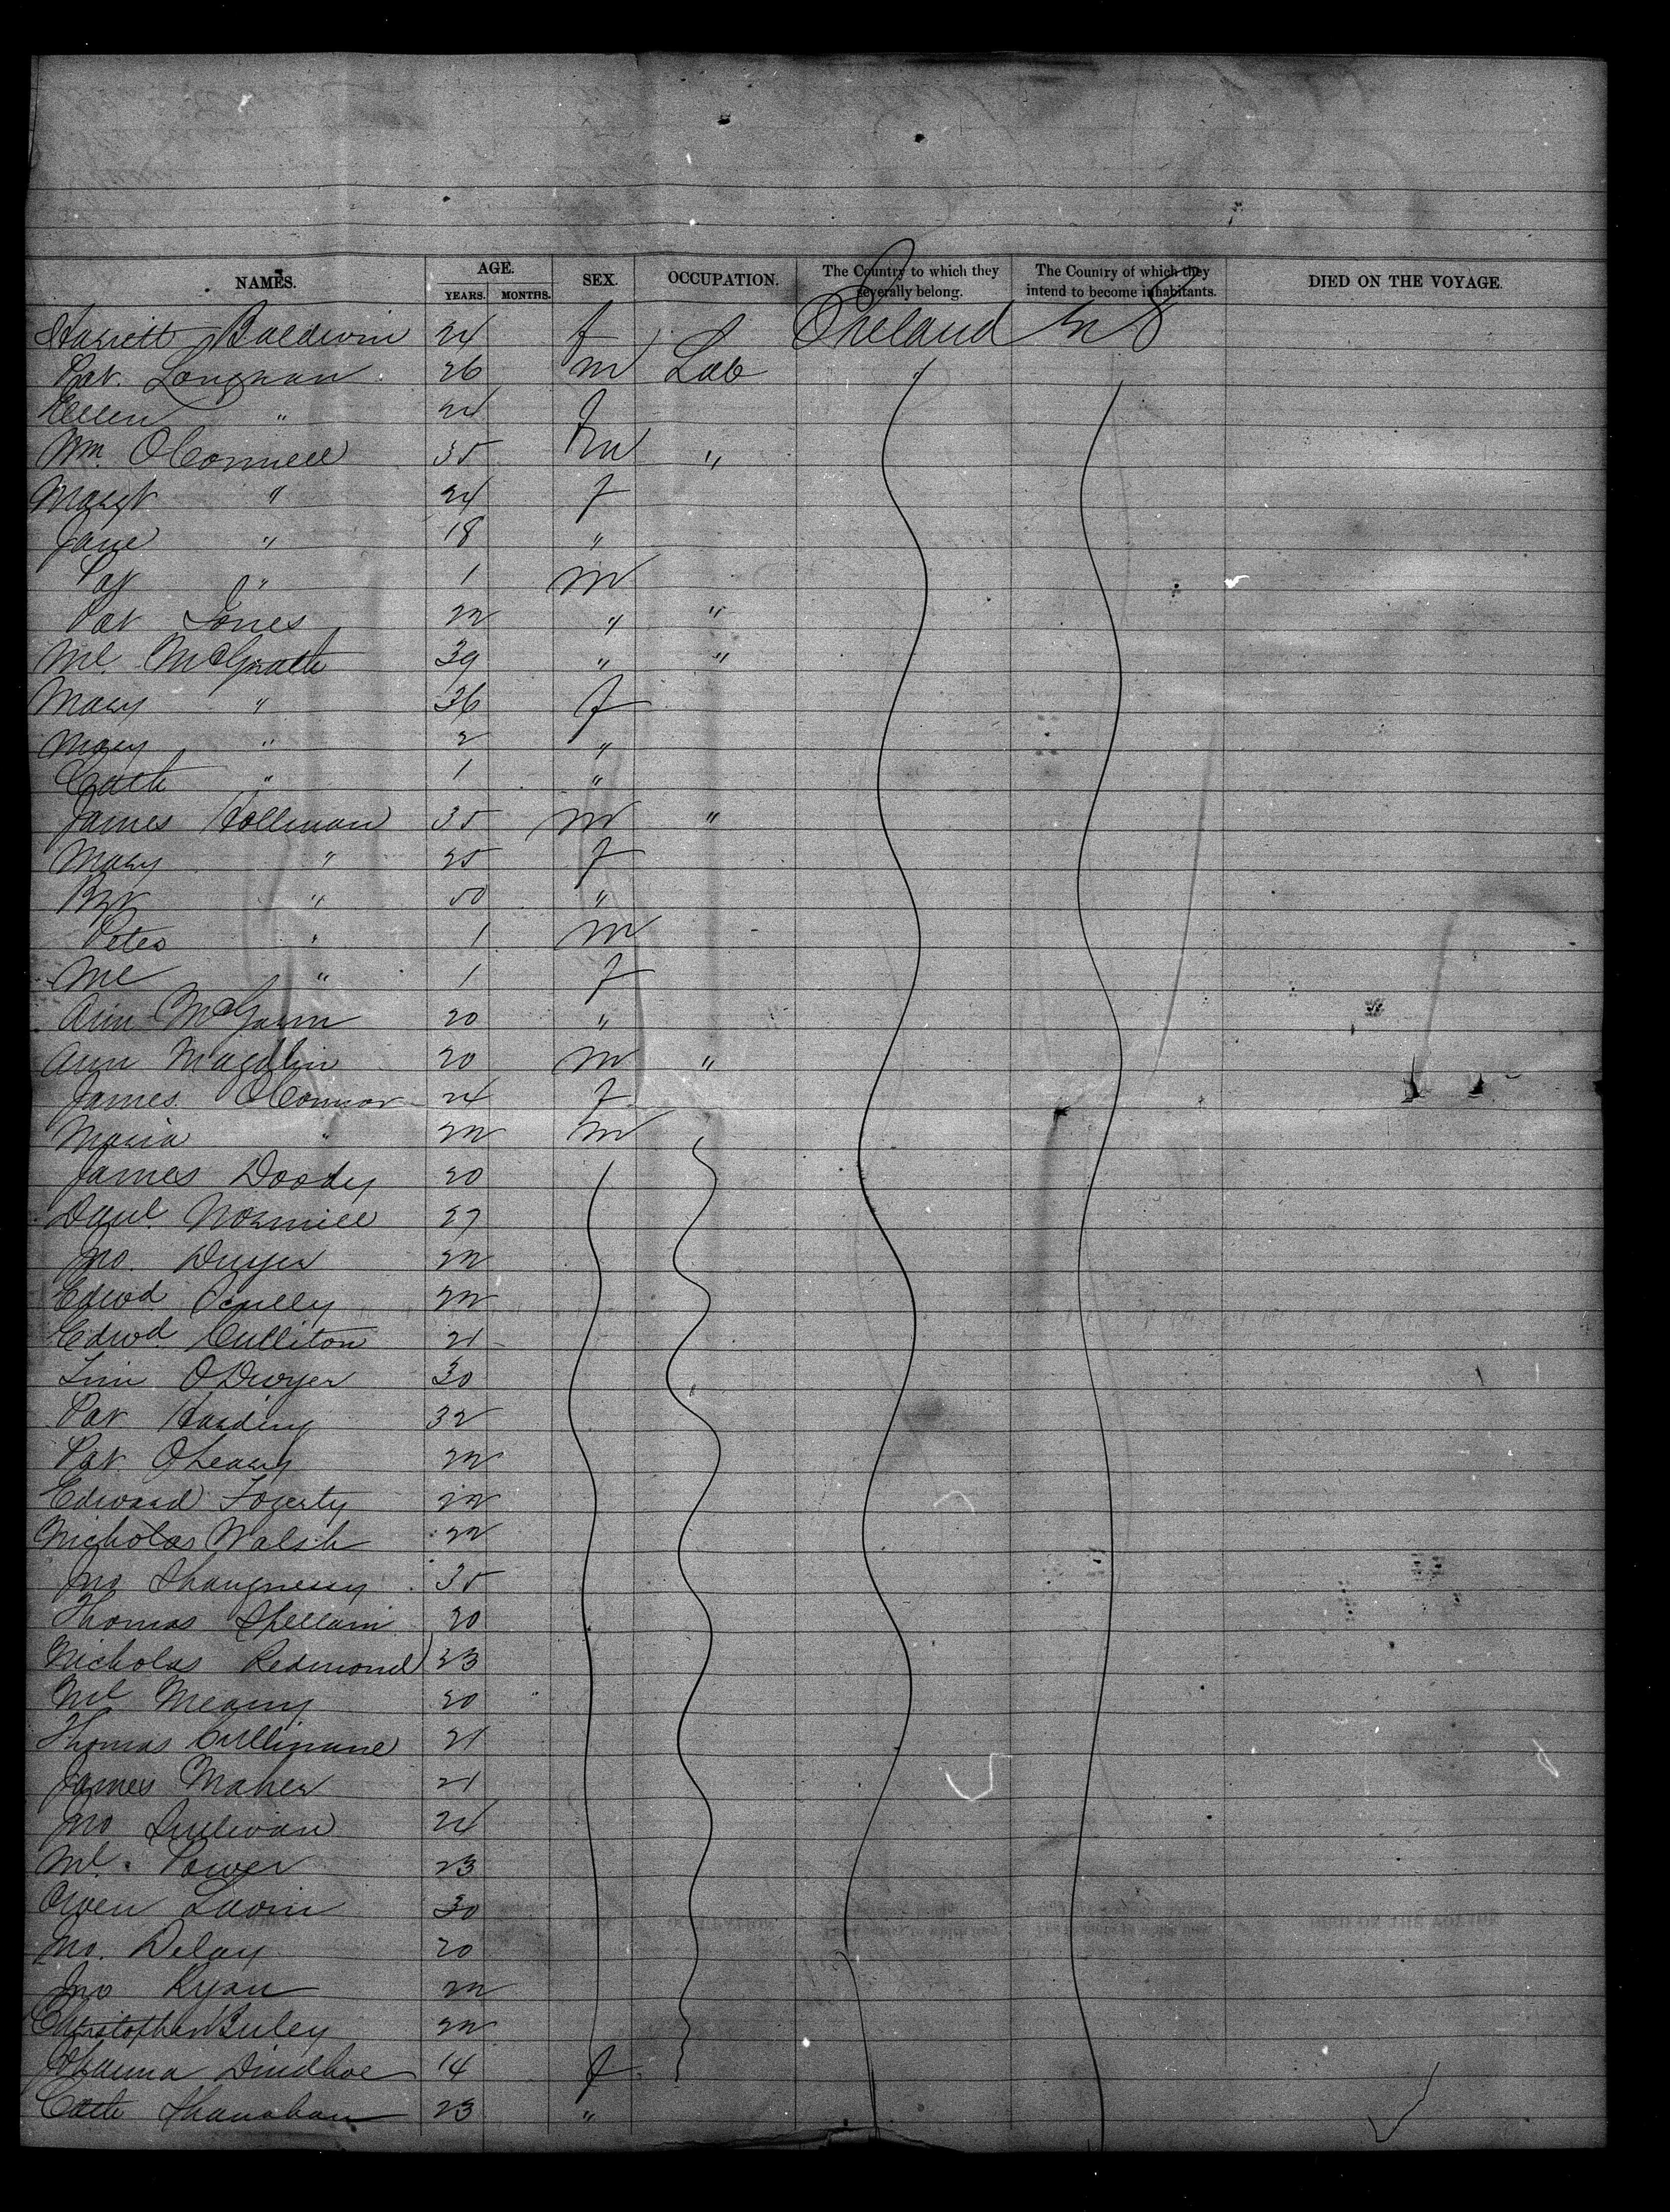 NAMES. AGE. SEX. OCCUPATION. The Country to which they severally belong. The Country of which they intend to become inhabitants. DIED ON THE VOYAGE.
YEARS. MONTHS.
Harriett Baldwin 24 f Ireland U S
Pat. Longnan 26 m Lab
Ellen " 24 f
Wm. OConnell 35 m "
Margt " 24 f
Jane " 18 "
Pat " 1 m
Pat Jones 22 " "
Ml. McGrath 39 " "
Mary " 36 f
Mary " 2 "
Cath " 1 "
James Hollman 35 m "
Mary " 25 f
Bgt " 50 "
Peter " 1 m
Ml " 1 f
Ann McGann 20 "
Ann Magdlin 20 m "
James OConnor 24 f
Maria " 22 m
James Doody 20
Danl. Normill 27
Jno. Dwyer 22
Edwd. Scully 22
Edwd. Culliton 21
Tim ODwyer 30
Pat Harding 32
Pat OLeary 22
Edward Fogerty 22
Nicholas Walsh 22
Jno Shaugnessy 35
Thomas 20
Nicholas Redmond 23
Ml Meany 20
Thomas Cullinane 21
James Maher 21
Jno Sullivan 24
Ml. Power 23
Owen Lavin 30
Jno. Delay 20
Jno Ryan 22
Christopher 22
Johanna 14 f
Cath Shanahan 23 "